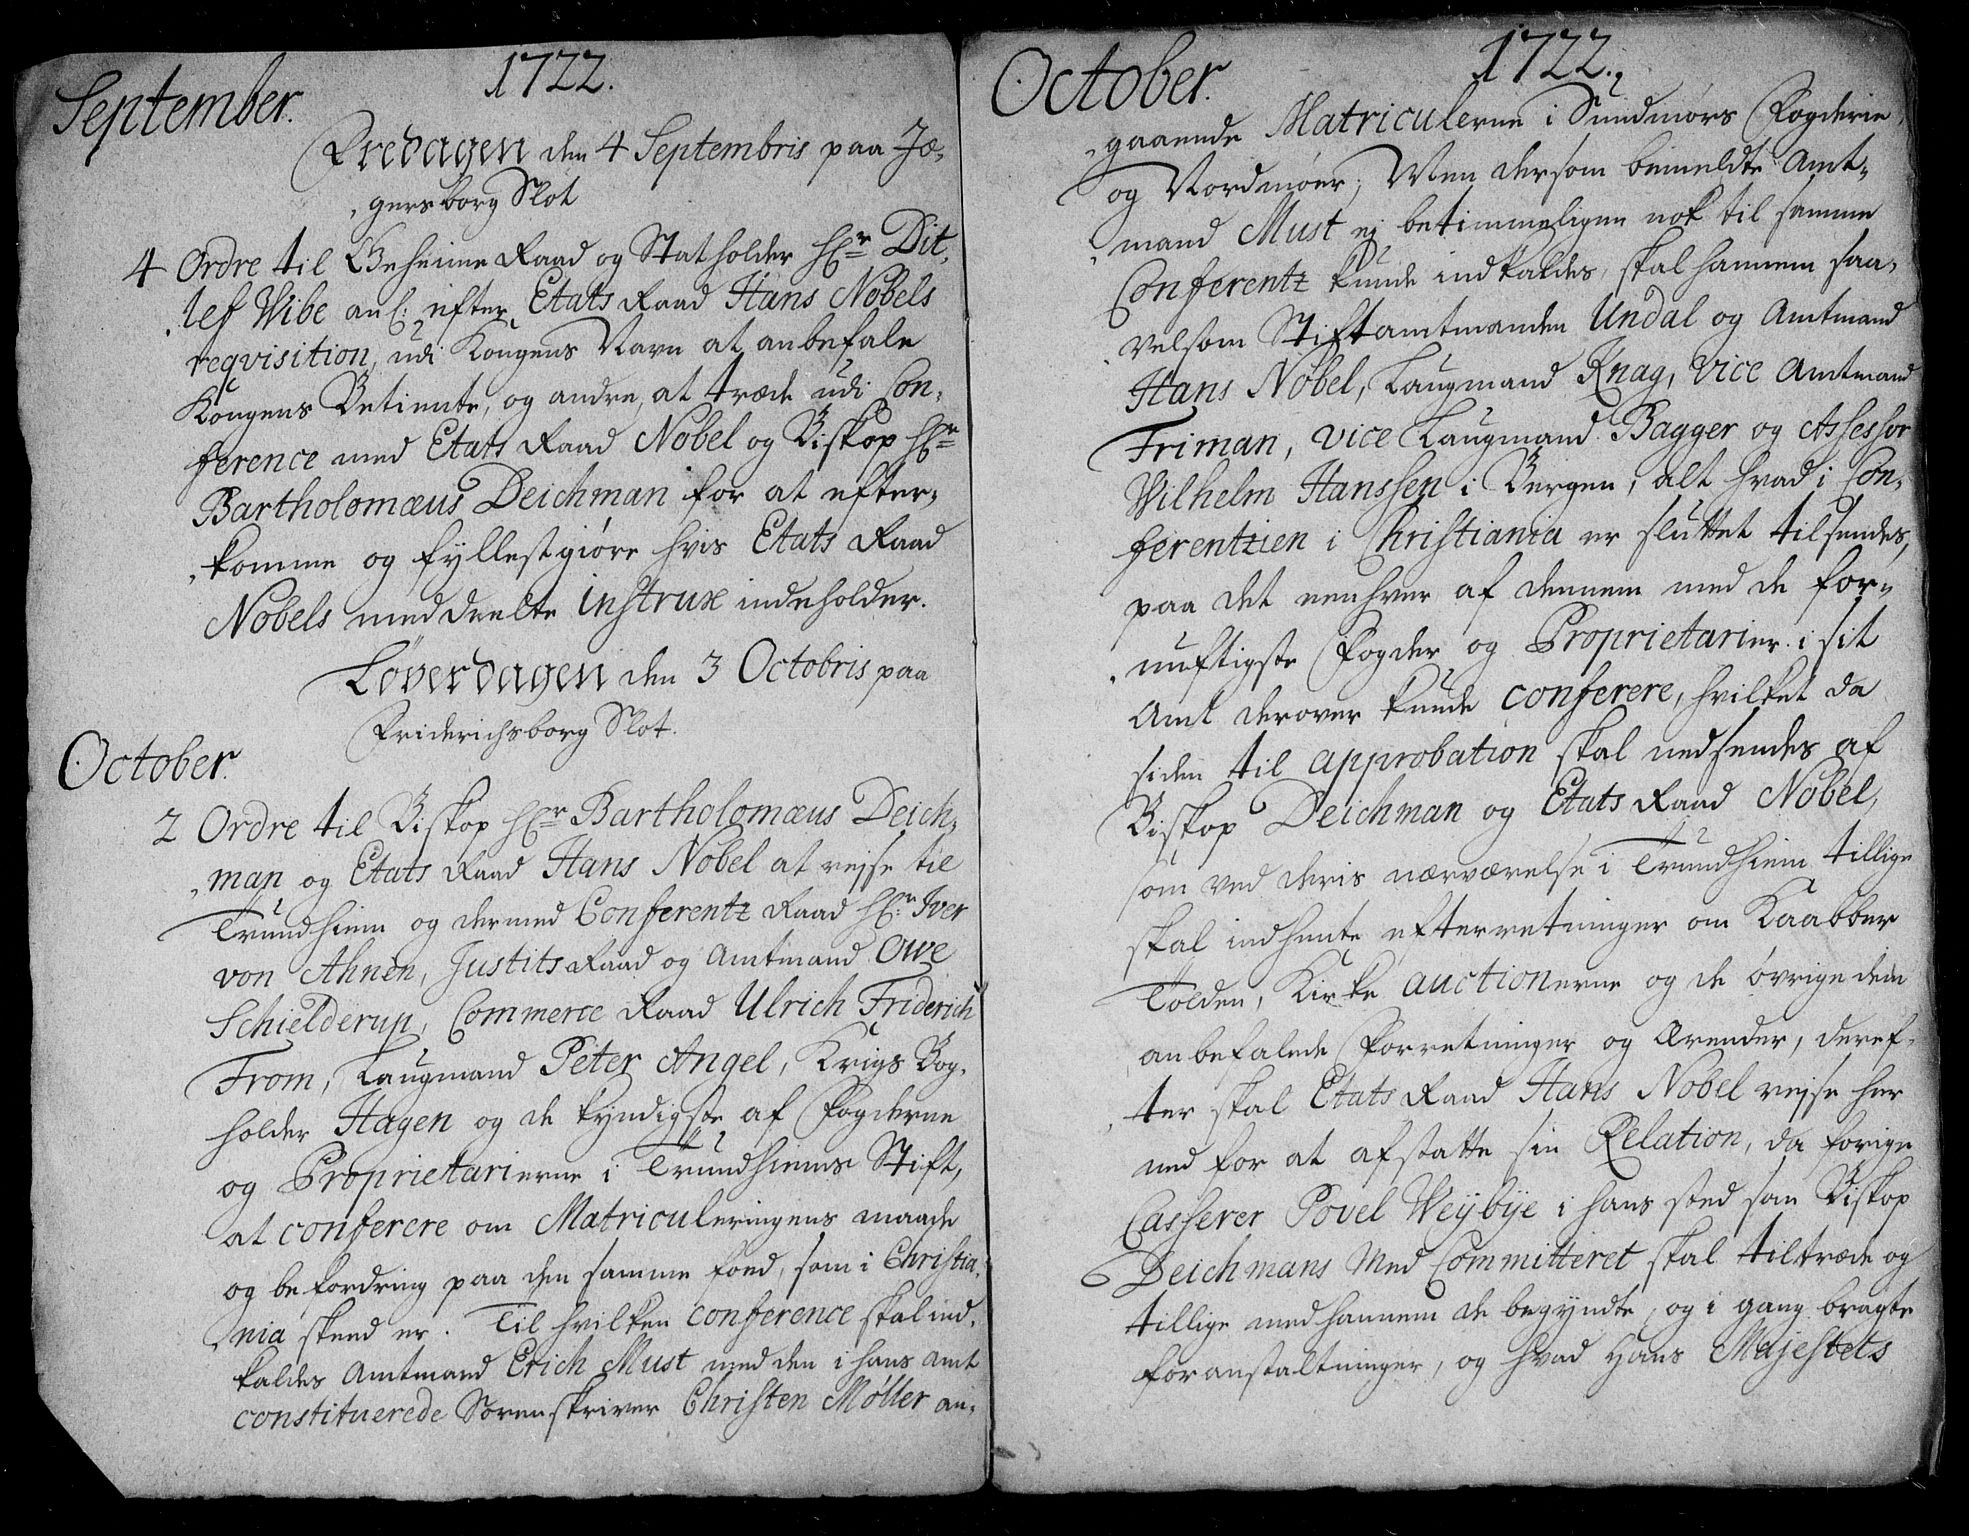 1722.
September.
Fredagen den 4 Septembris paa Jæ-
gersborg Slot
4 Ordre til Geheime Raad og Statholder Hr. Dit-
lef Wibe anl: efter Etats Raad Hans Nobels
reqvisition, udi Kongens Navn at anbefale
Kongens Betiente, og andre, at træde udi Con-
ference med Etats Raad Nobel og Biskop Hr.
Bartholomæus Deichman for at efter-
komme og fyllestgiøre hvis Etats Raad
Nobels meddeelte instrux indeholder.
Løverdagen den 3 Octobris paa
Friderichsborg Slot.
October.
2 Ordre til Biskop Hr. Bartholomæus Deich-
man og Etats Raad Hans Nobel at rejse til
Trundhiem og dermed Conferentz Raad Hr. Iver
von Ahnen, Justits Raad og Amtmand Owe
Schielderup, Commerce Raad Ulrich Friderich
From, Laugmand Peter Angel, Krigs Bog-
holder Hagen og de kyndigste af Fogderne
og Proprietarierne i Trundhiems Stift,
at conferere om Matriculeringens maade
og befordring paa den samme foed, som i Christia-
nia skeed er. Til hvilken conference skal ind-
kaldes Amtmand Erich Must med den i hans Amt
constituerede Sorenskriver Christen Møller an-
1722.
October.
gaaende Matriculerne i Sundmørs Fogderie
og Nordmøer; Men dersom bemeldte Amt-
mand Must ej betimmeligen nok til samme
Conferentz kunde indkaldes, skal hannem saa-
velsom Stiftamtmanden Undal og Amtmand
Hans Nobel, Laugmand Knag, Vice Amtmand
Friman, Vice Laugmand Bagger og Assessor
Wilhelm Hanssen i Bergen, alt hvad i Con-
ferentzien i Christiania er sluttet tilsendes,
paa det eenhver af dennem med de for-
nuftigste Fogder og Proprietarier i sit
Amt derover kunde conferere, hvilket da
siden til approbation skal nedsendes af
Biskop Deichman og Etats Raad Nobel,
som ved deris nærværelse i Trundhiem tillige
skal indhente efterretninger om Kaabber
Tolden, Kirke auctionerne og de øvrige dem
anbefalede Forretninger og Ærender, deref-
ter skal Etats Raad Hans Nobel rejse her
ned for at afstatte sin Relation, da forige
Casserer Povel Weybye i hans sted som Biskop
Deichmans Med Committeret skal tiltræde og
tillige med hannem de begyndte, og i gang bragte
foranstaltninger, og hvad Hans Majestets